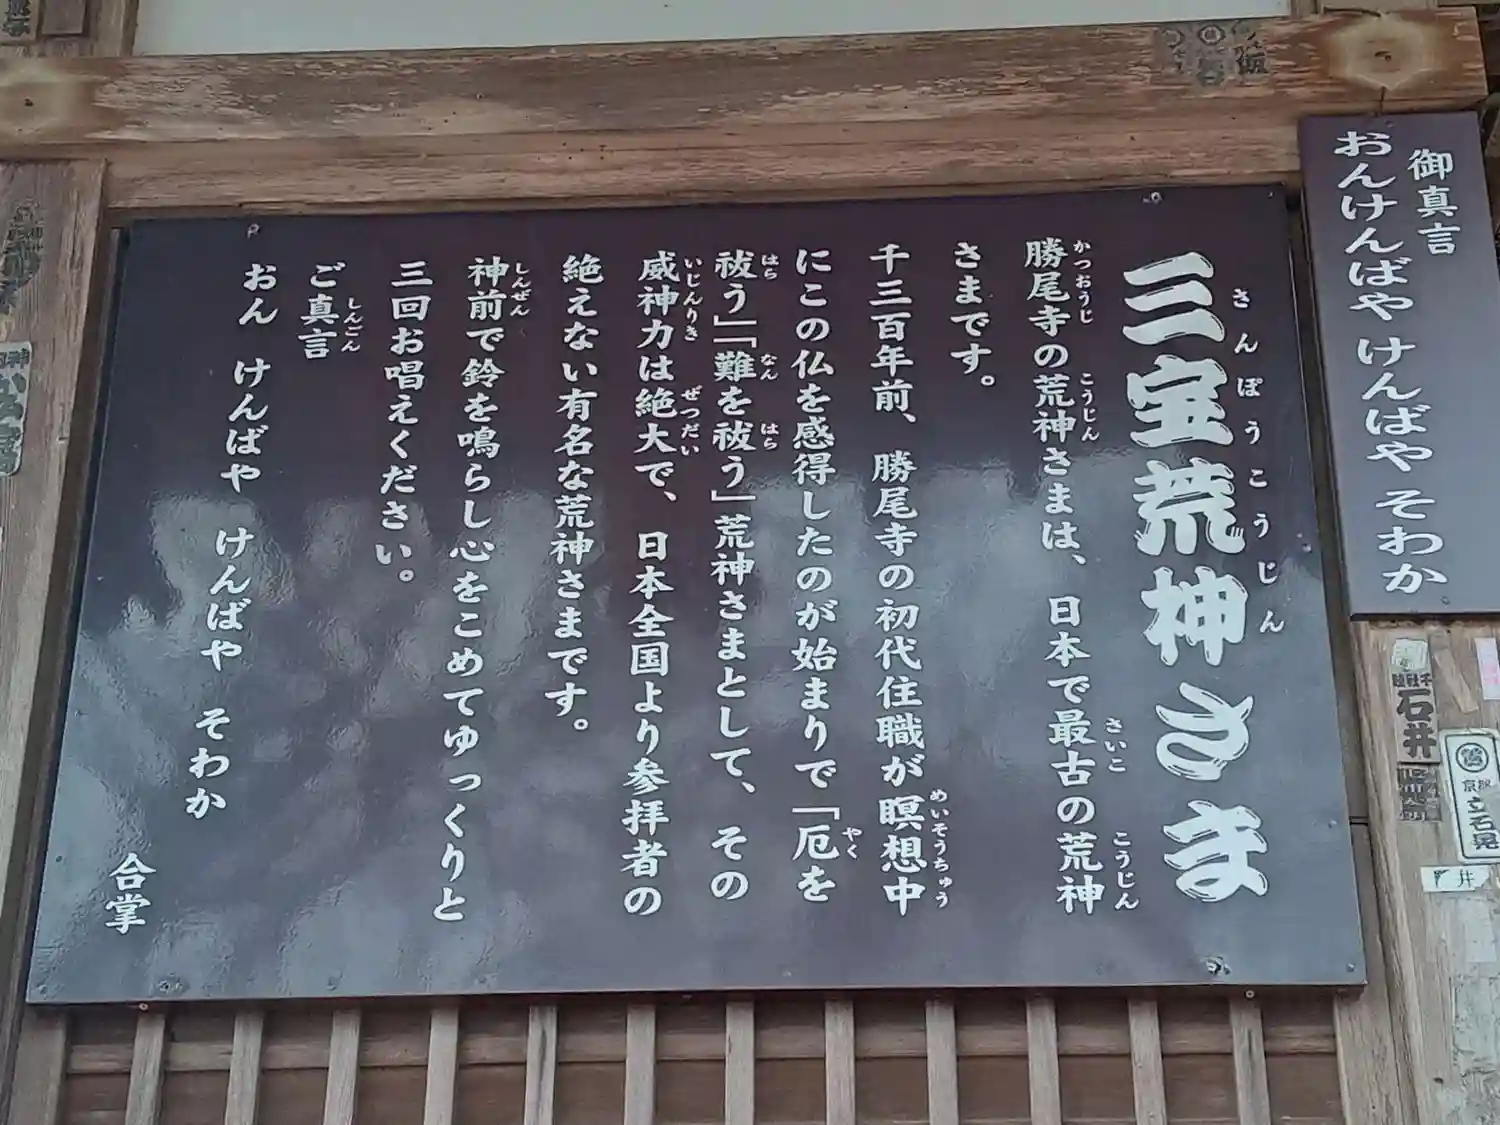 三宝荒神さま
さんぽうこうじん
勝尾寺の荒神さまは、日本で最古の荒神
かつおうじ こうじん さいこ こうじん
さまです。
千三百年前、勝尾寺の初代住職が瞑想中
めいそうちゅう
にこの仏を感得したのが始まりで「厄を
やく
祓う」「難を祓う」荒神さまとして、その
はら なん はら
威神力は絶大で、日本全国より参拝者の
いじんりき ぜつだい
絶えない有名な荒神さまです。
神前で鈴を鳴らし心をこめてゆっくりと
しんぜん
三回お唱えください。
ご真言
しんごん
おん けんばや けんばや そわか
合掌
御真言
おんけんばや けんばや そわか
石井
立石晃
井